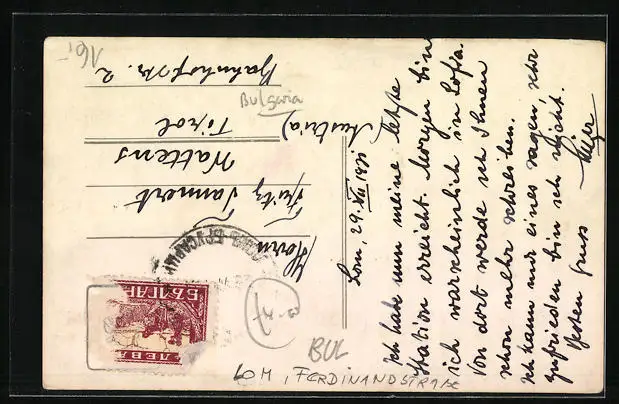 Lom, 29.XII 1931.
Ich habe nun meine letzte
Station erreicht. Morgen bin
ich warscheinlich in Sofia.
Von dort werde ich Ihnen
schon mehr schreiben.
Ich kann nur eines sagen, sehr
zufrieden bin ich nicht.
Besten Gruss
Herrn
Fritz Tannert
Wattens
Tirol
(Austria)
Bahnhofstr. 2
БЪЛГАР
ЛЕВА
Bulgaria
BUL
LOM, FERDINANDSTRAßE
16,-